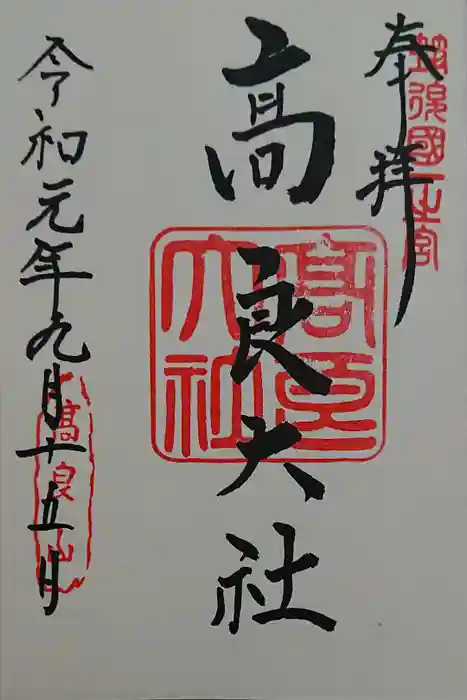 奉拝
筑後國一之宮
高良大社
高良大社
令和元年九月十五日
高良山